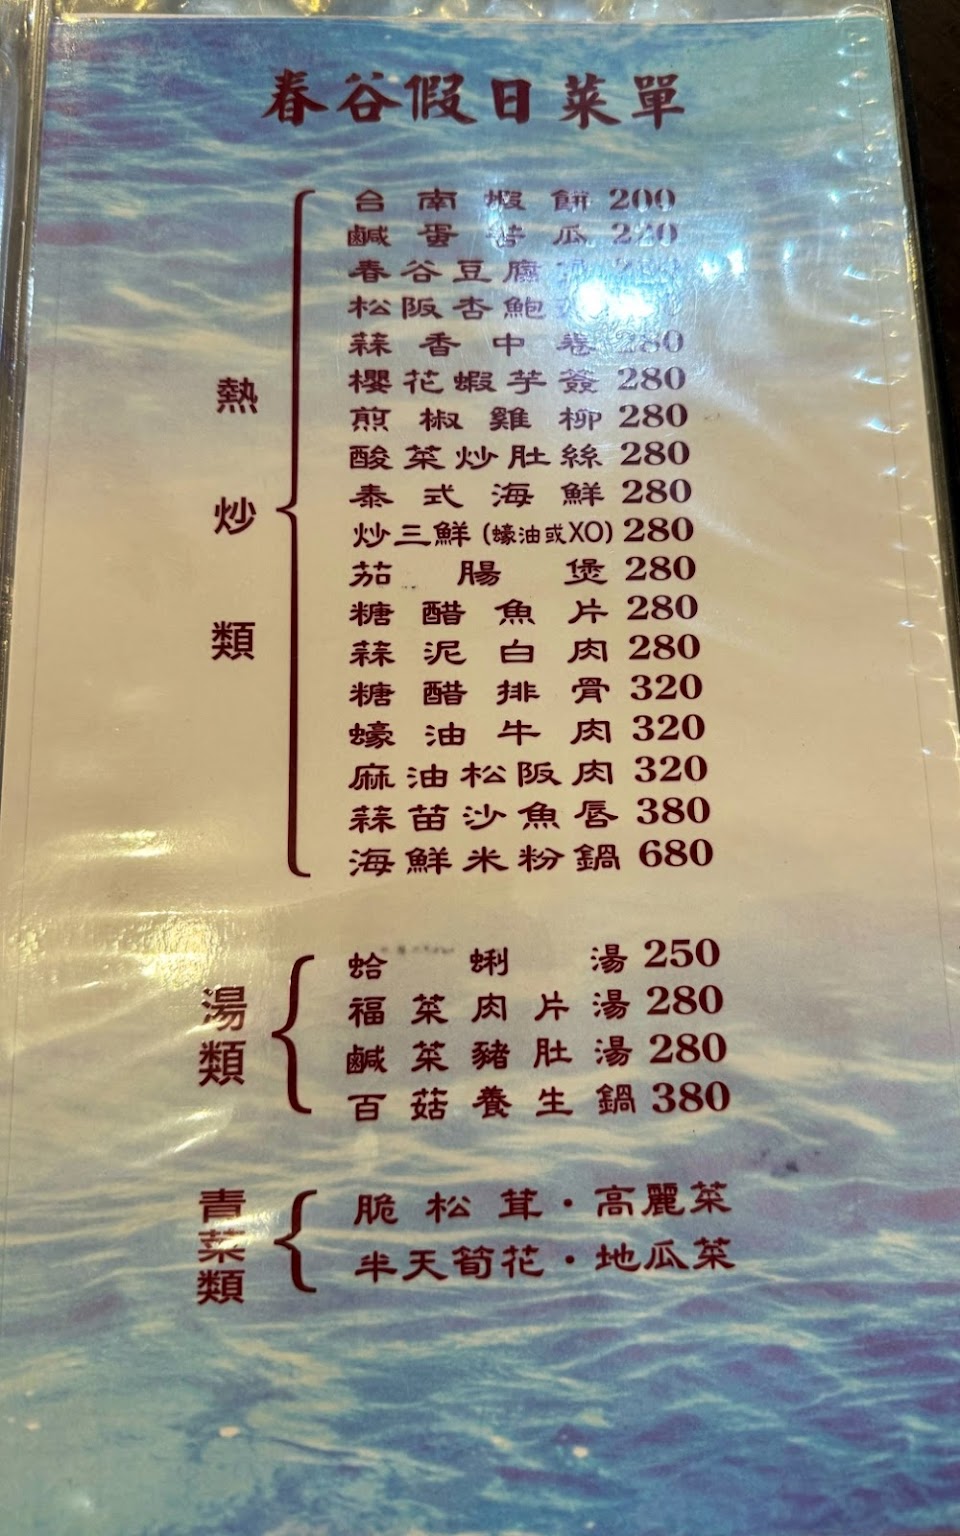 春谷假日菜單
熱炒類
台南蝦餅 200
鹹蛋苦瓜 220
春谷豆腐
松阪杏鮑
蒜香中卷 280
櫻花蝦芋簽 280
煎椒雞柳 280
酸菜炒肚絲 280
泰式海鮮 280
炒三鮮(蠔油或XO) 280
茄腸煲 280
糖醋魚片 280
蒜泥白肉 280
糖醋排骨 320
蠔油牛肉 320
麻油松阪肉 320
蒜苗沙魚唇 380
海鮮米粉鍋 680
湯類
蛤蜊湯 250
福菜肉片湯 280
鹹菜豬肚湯 280
百菇養生鍋 380
青菜類
脆松茸·高麗菜
半天筍花·地瓜菜